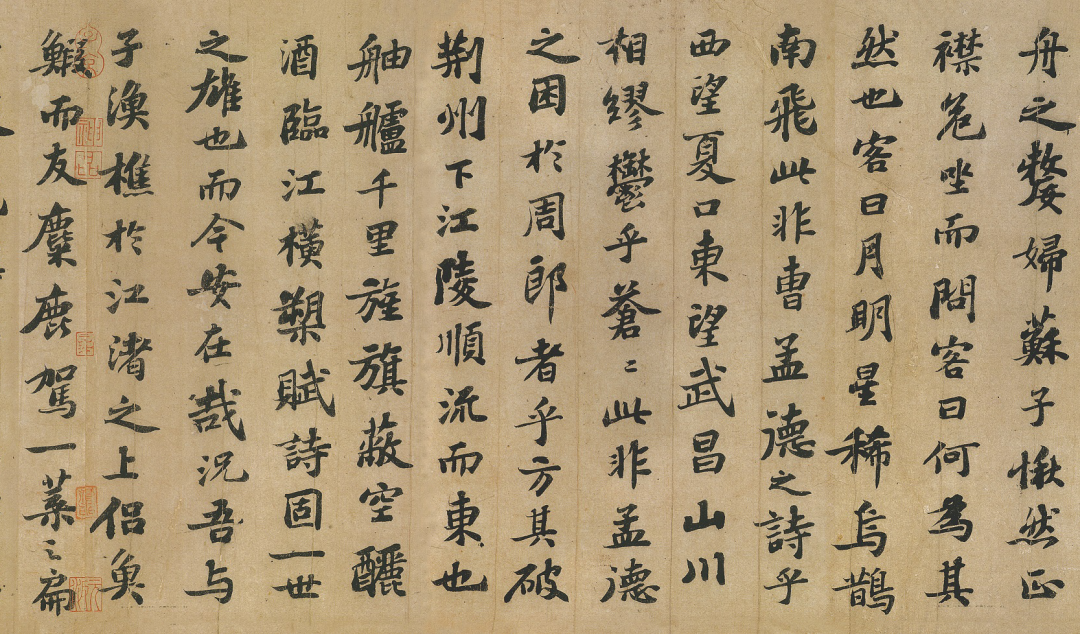 舟之嫠婦蘇子愀然正
襟危坐而問客曰何為其
然也客曰月明星稀烏鵲
南飛此非曹孟德之詩乎
西望夏口東望武昌山川
相繆鬱乎蒼〻此非孟德
之困於周郎者乎方其破
荆州下江陵順流而東也
舳艫千里旌旗蔽空釃
酒臨江橫槊賦詩固一世
之雄也而今安在哉況吾与
子漁樵於江渚之上侶魚
鰕而友麋鹿駕一葉之扁